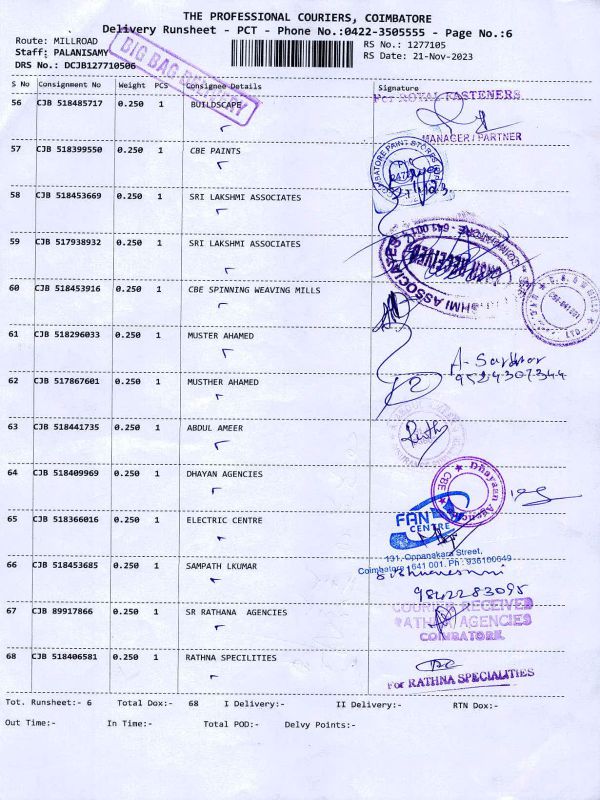 THE PROFESSIONAL COURIERS, COIMBATORE
Delivery Runsheet - PCT - Phone No.:0422-3505555 - Page No.:6
Route: MILLROAD
Staff: PALANISAMY
DRS No.: DCJB127710506
RS No.: 1277105
RS Date: 21-Nov-2023
BIG BAG DELIVERY
S No Consignment No Weight PCS Consignee Details Signature
56 CJB 518485717 0.250 1 BUILDSCAPE
For ROYAL FASTENERS
MANAGER / PARTNER
57 CJB 518399550 0.250 1 CBE PAINTS
58 CJB 518453669 0.250 1 SRI LAKSHMI ASSOCIATES
59 CJB 517938932 0.250 1 SRI LAKSHMI ASSOCIATES
60 CJB 518453916 0.250 1 CBE SPINNING WEAVING MILLS
61 CJB 518296033 0.250 1 MUSTER AHAMED
9524307344
62 CJB 517867601 0.250 1 MUSTHER AHAMED
63 CJB 518441735 0.250 1 ABDUL AMEER
64 CJB 518409969 0.250 1 DHAYAN AGENCIES
65 CJB 518366016 0.250 1 ELECTRIC CENTRE
FAN
CENTRE
131, Oppanakara Street,
Coimbatore - 641 001. Ph : 936100649
66 CJB 518453685 0.250 1 SAMPATH LKUMAR
9842283095
67 CJB 89917866 0.250 1 SR RATHANA AGENCIES
COURIER RECEIVED
RATHNA AGENCIES
COIMBATORE
68 CJB 518406581 0.250 1 RATHNA SPECILITIES
For RATHNA SPECIALITIES
Tot. Runsheet:- 6 Total Dox:- 68 I Delivery:- II Delivery:- RTN Dox:-
Out Time:- In Time:- Total POD:- Delvy Points:-